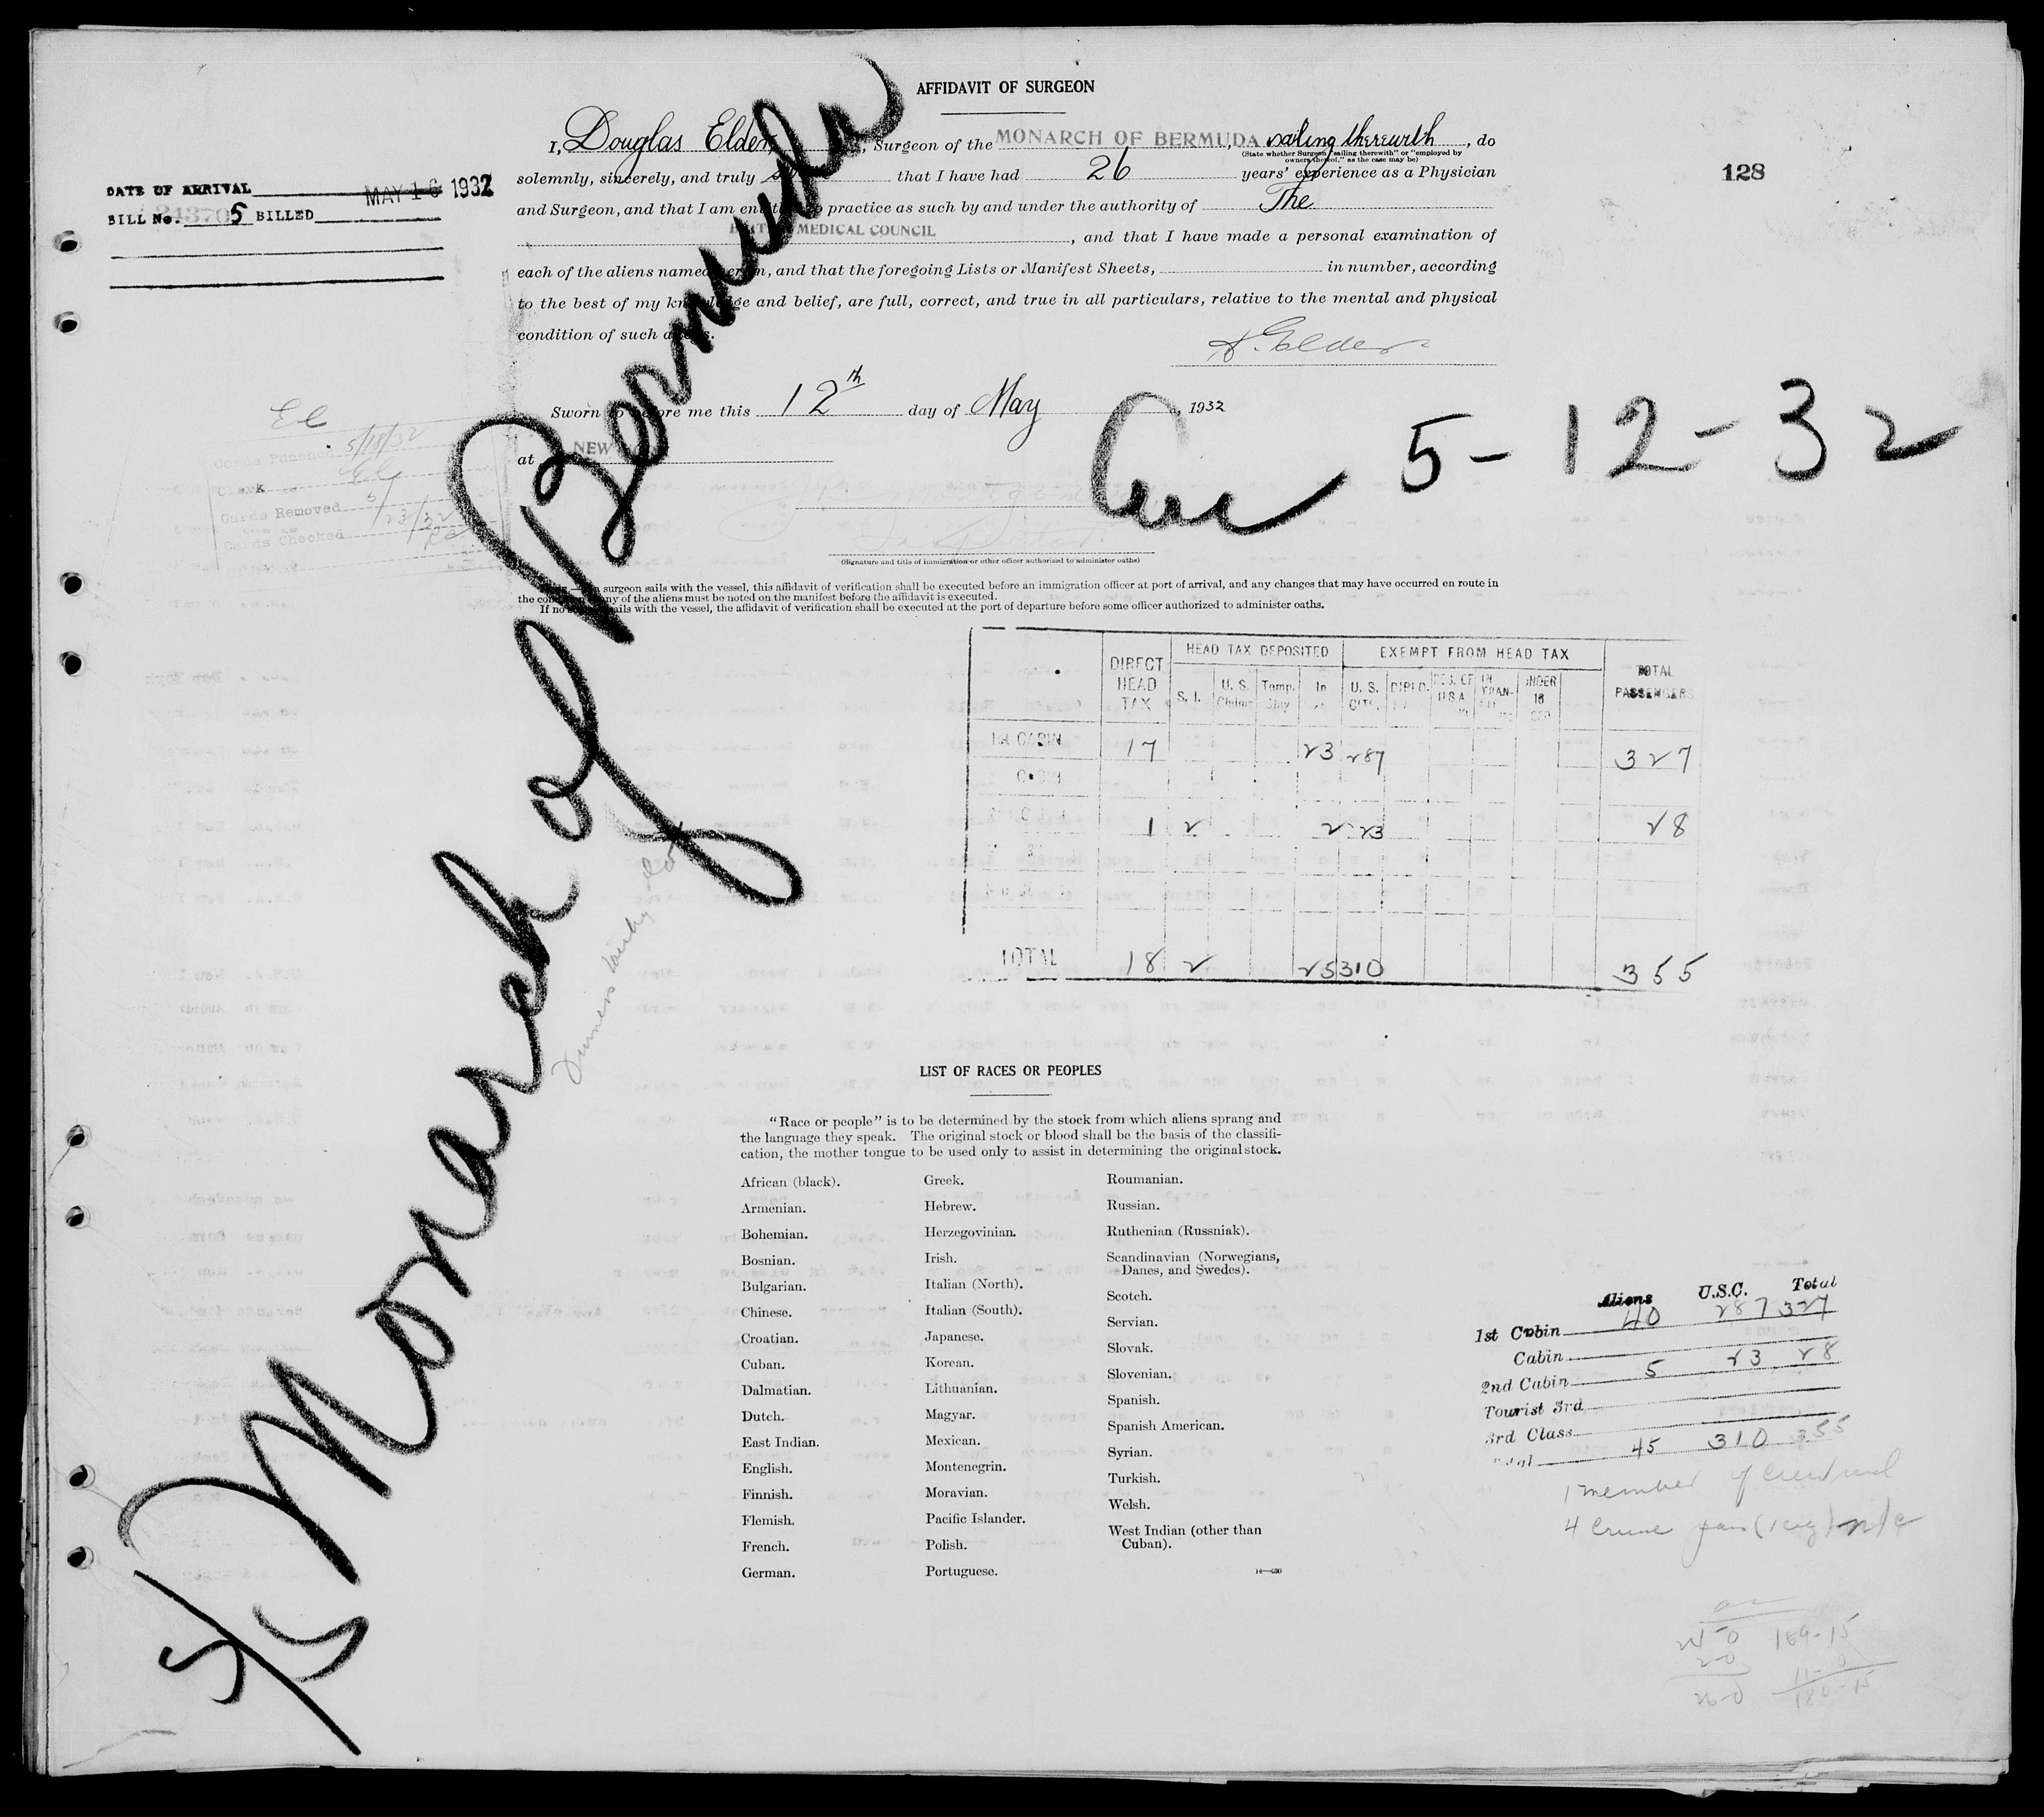 AFFIDAVIT OF SURGEON
I, Douglas Elder, Surgeon of the MONARCH OF BERMUDA, sailing therewith, do
(State whether Surgeon "sailing therewith" or "employed by
owners thereof," as the case may be)
solemnly, sincerely, and truly that I have had 26 years' experience as a Physician
and Surgeon, and that I am entitled to practice as such by and under the authority of The
BRITISH MEDICAL COUNCIL, and that I have made a personal examination of
each of the aliens named herein, and that the foregoing Lists or Manifest Sheets, in number, according
to the best of my knowledge and belief, are full, correct, and true in all particulars, relative to the mental and physical
condition of such aliens.
D. Elder
Sworn to before me this 12th day of May, 1932
at NEW
(Signature and title of immigration or other officer authorized to administer oaths)
surgeon sails with the vessel, this affidavit of verification shall be executed before an immigration officer at port of arrival, and any changes that may have occurred en route in
the condition of any of the aliens must be noted on the manifest before the affidavit is executed.
If no surgeon sails with the vessel, the affidavit of verification shall be executed at the port of departure before some officer authorized to administer oaths.
128
DATE OF ARRIVAL MAY 1 1932
BILL No. 5 BILLED
El
Cards Punched 5/18/32
Clerk El
Cards Removed 5/23/32
Cards Checked
Monarch of Bermuda
Arr 5-12-32
5/5
DIRECT HEAD TAX
HEAD TAX DEPOSITED
EXEMPT FROM HEAD TAX
TOTAL PASSENGERS
S. I. U. S. Temp. Stay In U. S. CIT. DIPLO. U.S.A. IN TRAN- UNDER 16
1st CABIN 17 23 287 327
CABIN
1 2 2 23 28
TOTAL 18 2 25 310 355
LIST OF RACES OR PEOPLES
"Race or people" is to be determined by the stock from which aliens sprang and
the language they speak. The original stock or blood shall be the basis of the classifi-
cation, the mother tongue to be used only to assist in determining the original stock.
African (black).
Armenian.
Bohemian.
Bosnian.
Bulgarian.
Chinese.
Croatian.
Cuban.
Dalmatian.
Dutch.
East Indian.
English.
Finnish.
Flemish.
French.
German.
Greek.
Hebrew.
Herzegovinian.
Irish.
Italian (North).
Italian (South).
Japanese.
Korean.
Lithuanian.
Magyar.
Mexican.
Montenegrin.
Moravian.
Pacific Islander.
Polish.
Portuguese.
Roumanian.
Russian.
Ruthenian (Russniak).
Scandinavian (Norwegians,
Danes, and Swedes).
Scotch.
Servian.
Slovak.
Slovenian.
Spanish.
Spanish American.
Syrian.
Turkish.
Welsh.
West Indian (other than
Cuban).
Aliens U.S.C. Total
1st Cabin 40 287 327
Cabin
2nd Cabin 5 23 28
Tourist 3rd
3rd Class
45 310 355
1 member of
4 Cruise
169-15
11-0
180-15
26-0